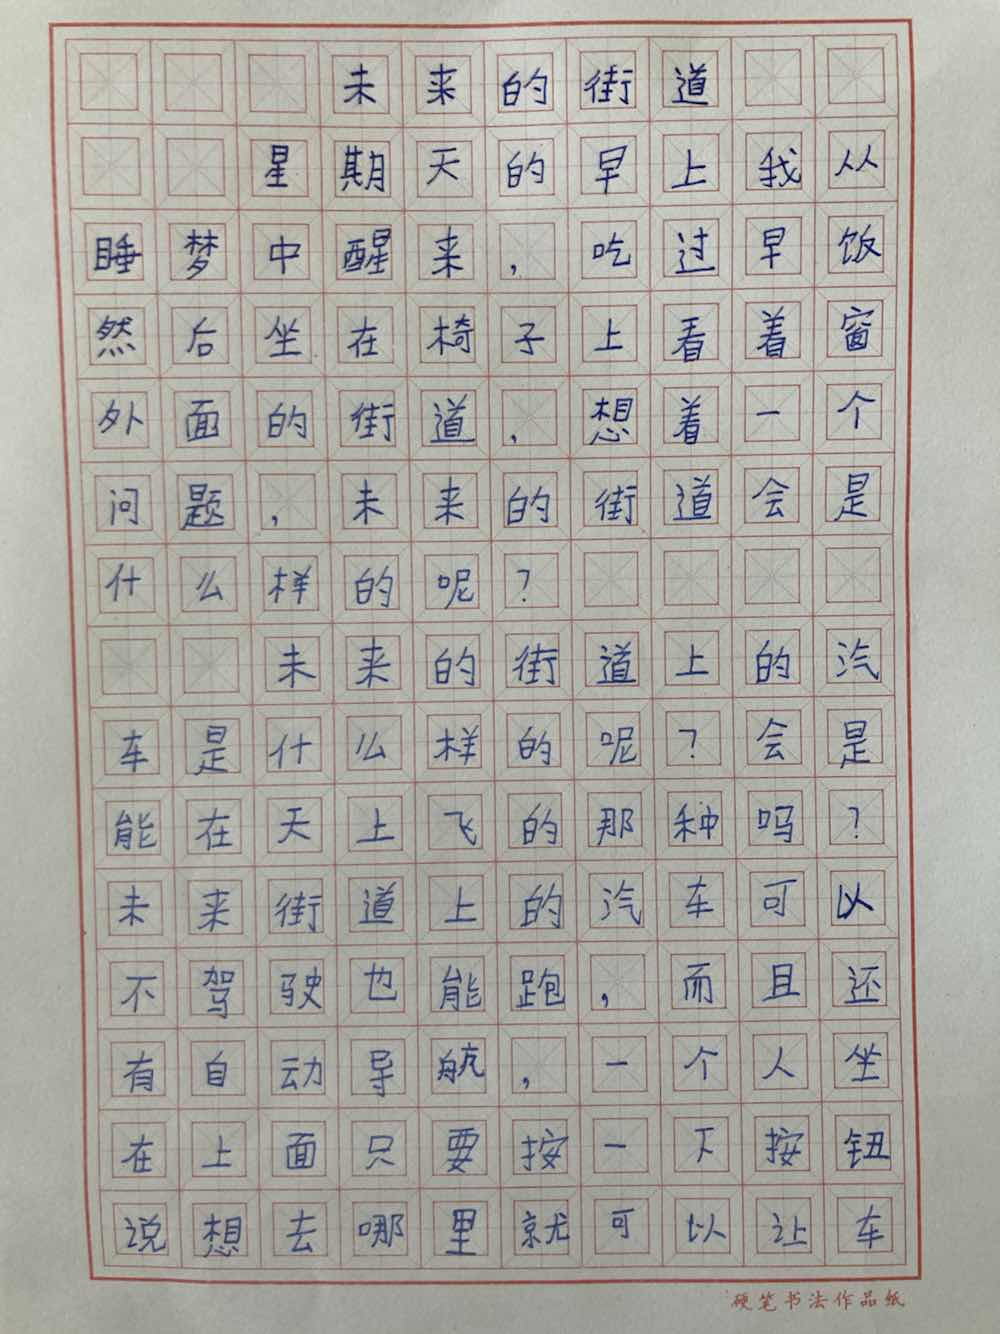 未来的街道
星期天的早上我从
睡梦中醒来，吃过早饭
然后坐在椅子上看着窗
外面的街道，想着一个
问题，未来的街道会是
什么样的呢？
未来的街道上的汽
车是什么样的呢？会是
能在天上飞的那种吗？
未来街道上的汽车可以
不驾驶也能跑，而且还
有自动导航，一个人坐
在上面只要按一下按钮
说想去哪里就可以让车
硬笔书法作品纸